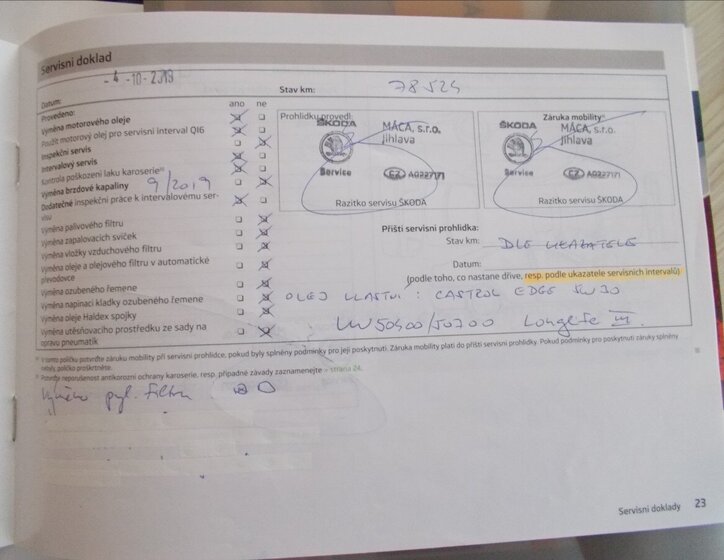 Servisní doklad
- 4 -10- 2019
Datum:
Stav km: 78 525
Provedeno: ano ne
Výměna motorového oleje
Použit motorový olej pro servisní interval QI6
Inspekční servis
Intervalový servis
Kontrola poškození laku karoserie
Výměna brzdové kapaliny 9/2019
Dodatečné inspekční práce k intervalovému ser-
visu
Výměna palivového filtru
Výměna zapalovacích svíček
Výměna vložky vzduchového filtru
Výměna oleje a olejového filtru v automatické
převodovce
Výměna ozubeného řemene
Výměna napínací kladky ozubeného řemene
Výměna oleje Haldex spojky
Výměna utěsňovacího prostředku ze sady na
opravu pneumatik
Prohlídku provedl:
ŠKODA
MÁCA, s.r.o.
Jihlava
Service
Razítko servisu ŠKODA
Záruka mobility
ŠKODA
MÁCA, s.r.o.
Jihlava
Service
Razítko servisu ŠKODA
Příští servisní prohlídka:
Stav km: DLE UKAZATELE
Datum:
(podle toho, co nastane dříve, resp. podle ukazatele servisních intervalů)
OLEJ VLASTNÍ : CASTROL EDGE 5W30
VW50400/50700 Longlife III.
V tomto políčku potvrďte záruku mobility při servisní prohlídce, pokud byly splněny podmínky pro její poskytnutí. Záruka mobility platí do příští servisní prohlídky. Pokud podmínky pro poskytnutí záruky splněny
nebyly, políčko proškrtněte.
Potvrďte neporušenost antikorozní ochrany karoserie, resp. případné závady zaznamenejte » strana 24.
Výměna pyl. filtru
Servisní doklady 23